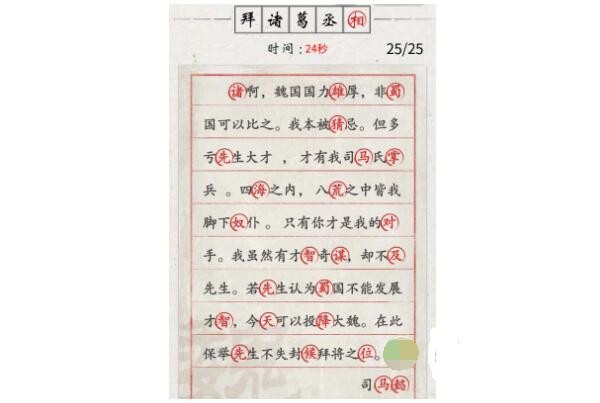 拜诸葛丞相
时间：24秒 25/25
诸啊，魏国国力雄厚，非蜀
国可以比之。我本被猜忌。但多
亏先生大才，才有我司马氏掌
兵。四海之内，八荒之中皆我
脚下奴仆。只有你才是我的对
手。我虽然有才智奇谋，却不及
先生。若先生认为蜀国不能发展
才智，今天可以投降大魏。在此
保举先生不失封候拜将之位。
司马懿